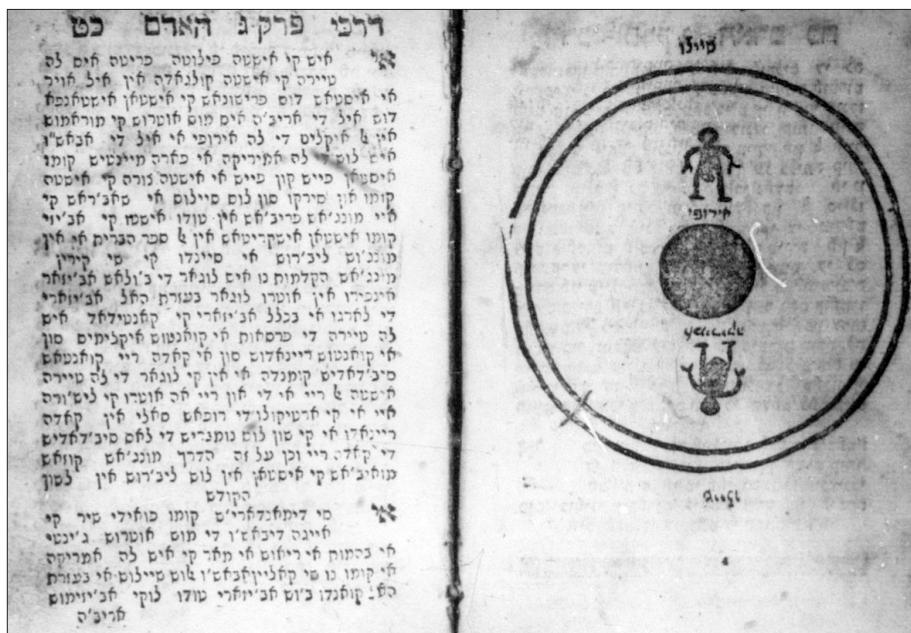 דרכי פרק ג האדם כט
אי איש קי אישטה פילוטה פריטה אים לה
טיירה קי אישטה קולגאדה אין איל אויר
אי איסטאש דוס פרישונאש קי אישטאן אישטאנפא
דוש איל די אריב'ה אים מוס אוטרוש קי מוראמוש
אין ﭏ איקלים די לה אירופי אי איל די אבאש"ו
איש לוש די לה אמיריקה אי פארה מיינטיש קומו
איסטאן פייש קון פייש אי אישטה גורה קי אישטה
קומו און סירקו סון לוס סיילוס אי שאב'ראש קי
איי מונג'אש פריב'אש אין טודו אישטו קי אב'יזי
קומו אישטאן אישקריטאש אין ﭏ ספר הברית אי אין
מונג'וש ליב'רוש אי סיינדו קי סי קירין
מונג'אש הקדמות נו איש לוגאר די ב'ולאש אב'יזאר
אינפירו אין אוטרו לוגאר בעזרת האל אב'יזארי
די לארגו אי בכלל אב'יזארי קי קאנטידאד איש
לה טיירה די פרסאות אי קואנטוש איקלימים סון
אי קואנטוש ריינאדוש סון אי קאדה ריי קואנטאש
סיב'דאדיש קומנדה אי אין קי לוגאר די לה טיירה
אישטה ﭏ ריי אי די און ריי אה אוטרו קי ליש'ורה
איי אי קי ארטיקולו די רופאש סאלי אין קאדה
ריינאדו אי קי סון לוש נומבריש די לאס סיב'דאדיש
די קאדה ריי וכן על זה הדרך מונג'אש קוזאש
מואיב'אש קי אישטאן אין לוש ליב'רוש אין לשון
הקודש
אי סי דימאנדארי"ש קומו פואידי שיר קי
אייגה דיבאש'ו די מוש אוטרוש ג'ינטי
אי בהמות אי ריאוש אי מאר קי איש לה אמריקה
אי קומו נו סי קאליין אבאש'ו לוש סיילוש אי בעזרת
האל קואנדו ב'וש אב'יזארי טודו לוקי אב'יזימוש
אריב'ה
סיילו
אירופי
אמיריקה
סיילו